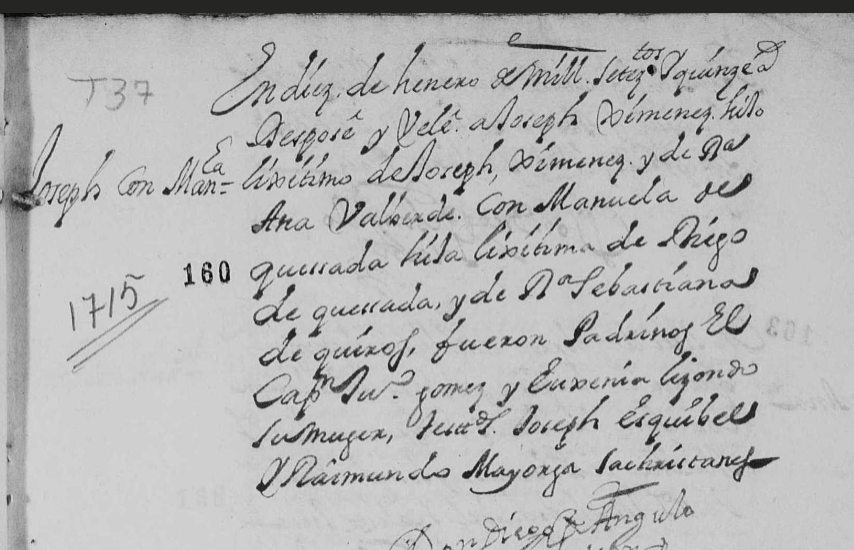 T37
En diez. de henero de Mill. Setez.tos y quinze a
Desposé y Velé. a Joseph Ximenez. hijo
Joseph Con Man=la
lixitimo de Joseph, Ximenez. y de Da
Ana Valberde. Con Manuela de
160
quessada hija lixitima de Diego
1715
de quessada, y de Da Sebastiana
de quiros, fueron Padrinos El
Capn Juo. gomez y Euxenia lizondo
su muger, testts. Joseph Esquibel
y Raimundo Mayorga sachristanes
Don Diego de Angulo